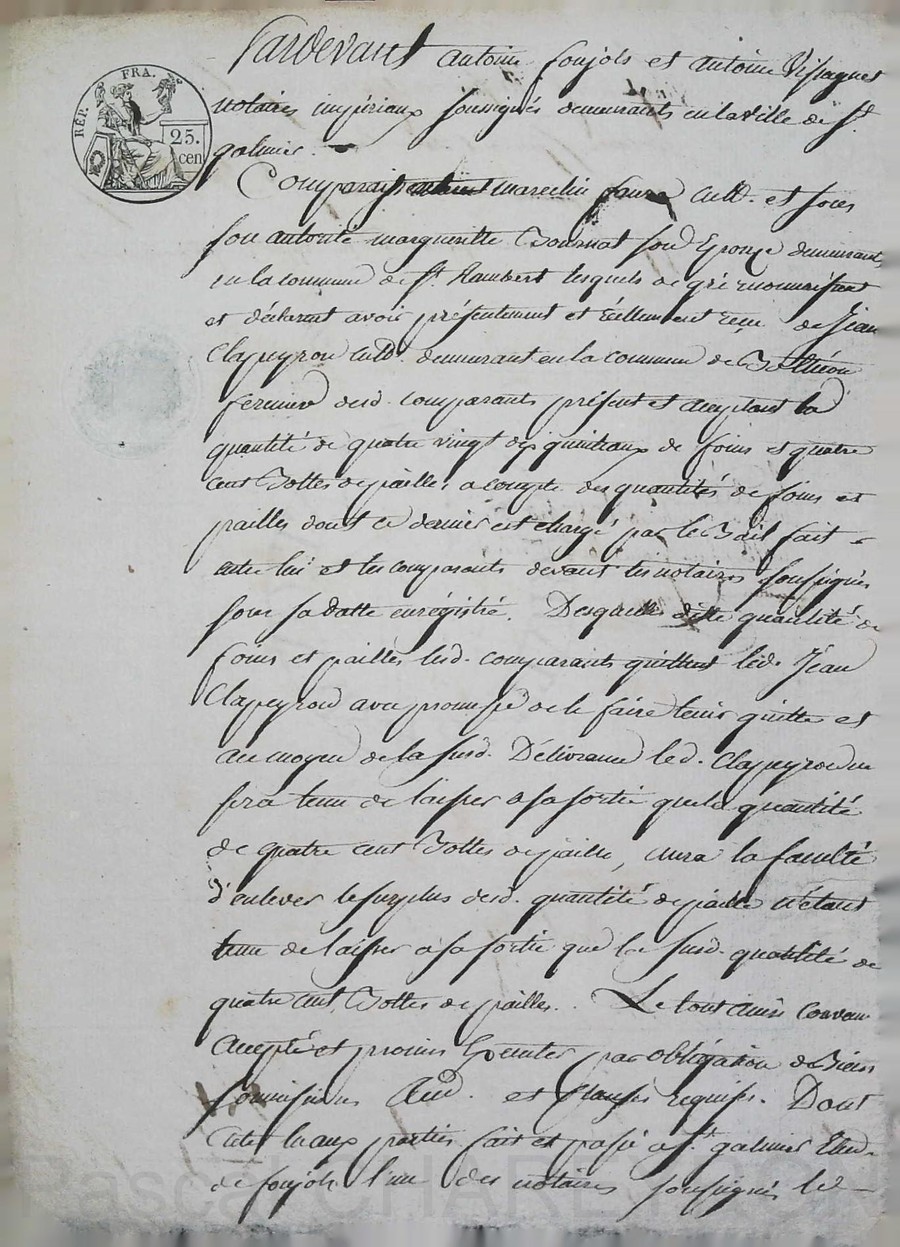 RÉP. FRA.
25.
cen
Pardevant antoine foujols et antoine Vispagnes
notaires impériaux soussignés demeurants en la ville de St.
galmier.
Comparaissent marcelin faure cult. et sous
son autorité marguerite Bournat son Epouze demeurants
en la commune de St. Rambert lesquels de gré reconnaissent
et déclarent avoir présentement et réellement reçu de Jean
Clapeyron cult. demeurant en la commune de Bothéon
fermier desd. comparants présent et acceptant la
quantité de quatre vingt dix quintaux de foins et quatre
cent Bottes de pailles, a compte des quantités de foins et
pailles dont ce dernier est chargé par le Bail fait
entre lui et les comparants devant les notaires soussignés
sous sa datte enrégistré. Desquelles dite quantité de
foins et pailles lesd. comparants quittent led. Jean
Clapeyron avec promesse de le faire tenir quitte et
au moyen de la susd. Délivrance led. Clapeyron ne
sera tenu de laisser a sa sortie que la quantité
de quatre cent Bottes de paille, aura la faculté
d'enlever le surplus desd. quantité de paille n'étant
tenu de laisser a sa sortie que la susd. quantité de
quatre cent Bottes de pailles. Le tout ainsi convenu
accepté et promis Exécuter par obligation de Biens
soumissions et clauses requises. Dont
acte aux parties fait et passé a St. galmier Etude
de foujols l'un des notaires soussignés le
Pascal CHAREYRON